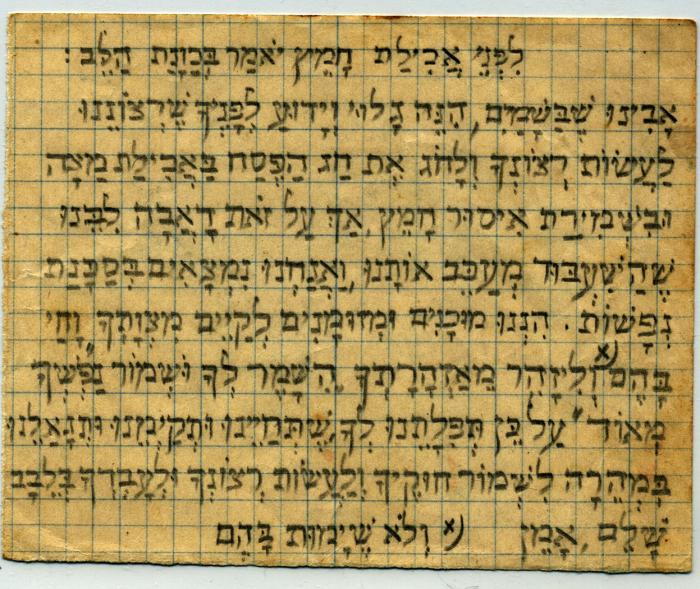 לִפְנֵי אֲכִילַת חָמֵץ יֹאמַר בְּכַוָּנַת הַלֵּב :
אָבִינוּ שֶׁבַּשָּׁמַיִם, הִנֵּה גָלוּי וְיָדוּעַ לְפָנֶיךָ שֶׁרְצוֹנֵנוּ
לַעֲשׂוֹת רְצוֹנְךָ וְלָחֹג אֶת חַג הַפֶּסַח בַּאֲכִילַת מַצָּה
וּבִשְׁמִירַת אִיסוּר חָמֵץ, אַךְ עַל זֹאת דָאֲבָה לִבֵּנוּ
שֶׁהַשִּׁעְבּוּד מְעַכֵּב אוֹתָנוּ, וַאֲנַחְנוּ נִמְצָאִים בְּסַכָּנַת
נְפָשׁוֹת. הִנְנוּ מוּכָנִים וּמְזוּמָּנִים לְקַיֵּים מִצְוָתֶךָ "וָחַי
בָּהֶם" x) וְלִיזָּהֵר מֵאַזְהָרָתְךָ "הִשָּׁמֶר לְךָ וּשְׁמוֹר נַפְשְׁךָ
מְאוֹד" עַל כֵּן תְּפִלָּתֵנוּ לְךָ, שֶׁתְּחַיֵּינוּ וּתְקַיְּמֵנוּ וְתִגְאָלֵנוּ
בִּמְהֵרָה לִשְׁמוֹר חוּקֶיךָ וְלַעֲשׂוֹת רְצוֹנְךָ וּלְעָבְדְךָ בְּלֵבָב
שָׁלֵם, אָמֵן x) וְלֹא שֶׁיָּמוּת בָּהֶם